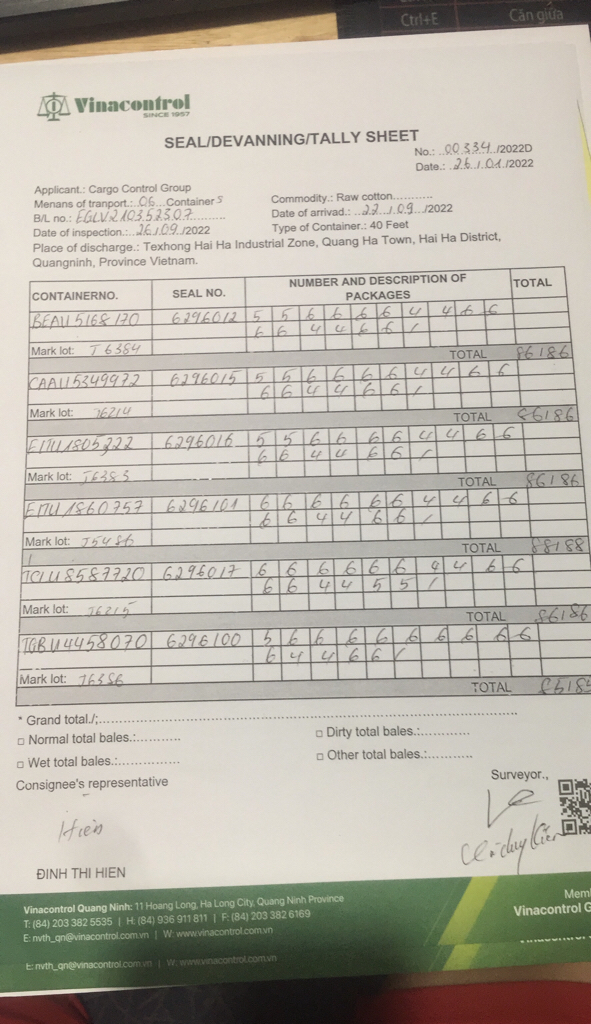 Ctrl+E
Căn giữa
Vinacontrol
SINCE 1957
SEAL/DEVANNING/TALLY SHEET
No.: 00334 /2022D
Date.: 26 / 01 /2022
Applicant.: Cargo Control Group
Menans of tranport.: 06 Containers
Commodity.: Raw cotton...........
B/L no.: EGLV210352307
Date of arrivad.: 22 / 09 /2022
Date of inspection.: 26/09 /2022
Type of Container.: 40 Feet
Place of discharge.: Texhong Hai Ha Industrial Zone, Quang Ha Town, Hai Ha District,
Quangninh, Province Vietnam.
CONTAINERNO. SEAL NO. NUMBER AND DESCRIPTION OF PACKAGES TOTAL
BEAU 5168170 6296012 5 5 6 6 6 6 4 4 6 6
6 6 4 4 6 6 /
Mark lot: J6384
TOTAL 86186
CAAU5349972 6296015 5 5 6 6 6 6 4 4 6 6
6 6 4 4 6 6 /
Mark lot: J6214
TOTAL 86186
EITU1805222 6296016 5 5 6 6 6 6 4 4 6 6
6 6 4 4 6 6 /
Mark lot: J6383
TOTAL 86186
EITU1860757 6296101 6 6 6 6 6 6 4 4 6 6
6 6 4 4 6 6 /
Mark lot: J5486
TOTAL 88188
TCLU8587720 6296017 6 6 6 6 6 6 4 4 6 6
6 6 4 4 5 5 /
Mark lot: J6215
TOTAL 86186
TGBU4458070 6296100 5 6 6 6 6 6 6 6 6 6
6 4 4 6 6 /
Mark lot: J6386
TOTAL
* Grand total./:...............
□ Normal total bales.:...........
□ Dirty total bales.:...........
□ Wet total bales.:...............
□ Other total bales.:...........
Consignee's representative
Surveyor.,
Hiên
ĐINH THI HIEN
Vinacontrol Quang Ninh: 11 Hoang Long, Ha Long City, Quang Ninh Province
T: (84) 203 382 5535 | H: (84) 936 911 811 | F: (84) 203 382 6169
E: nvth_qn@vinacontrol.com.vn | W: www.vinacontrol.com.vn
Memb
Vinacontrol G
E: nvth_qn@vinacontrol.com.vn | W: www.vinacontrol.com.vn